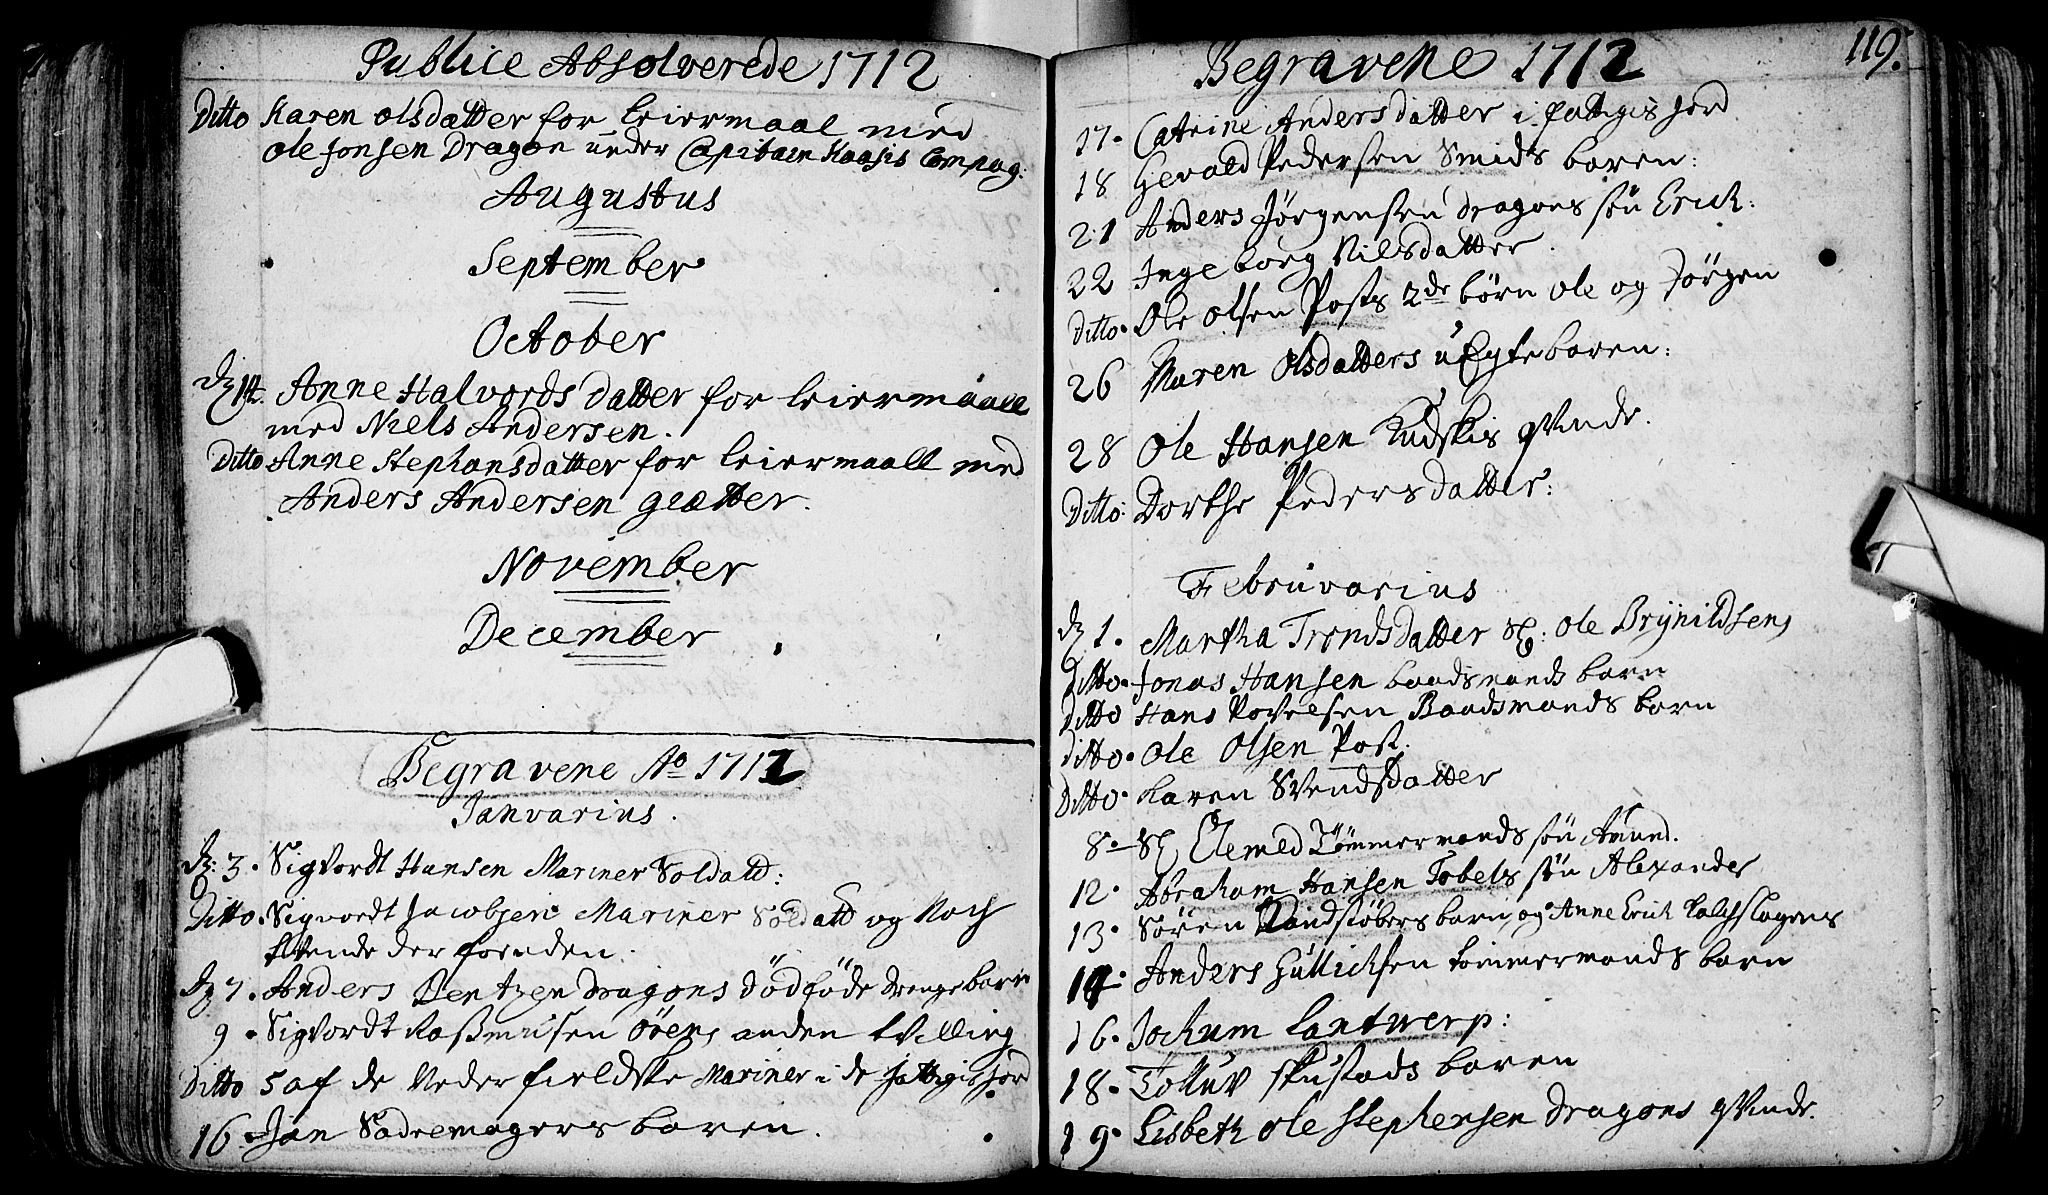 Publice Absolverede 1712
Ditto Karen olsdatter for leiermaal med
ole Jonsen Dragon under Capitain Kaasis Compag:
Augustus
September
October
dz 14. Anne Halvords datter for leiermaall
med Niels Andersen.
Ditto Anne Stephansdatter for leiermaall med
Anders Andersen gletter.
November
December
Begravene Ao 1712
Januarius.
dz: 3. Sigvordt Hansen Mariner Soldatt:
Ditto. Sigvordt Jacobsen Mariner Soldatt og Noch
tvende der foruden.
dz 7. Anders Bentzen dragons dödföde drengebarn
9. Sigvordt Rasmusen örens anden tvilling
Ditto 5 af de Nederfieldske Mariner i de fattigis Jord
16. Jan Sademagers baren.
Begravene 1712
119.
17. Catrine Andersdatter i fattigis Jord
18 Gevald Pedersen Smids baren:
21 Anders Jörgensen dragons sön Erick:
22 Ingeborg Nilsdatter.
Ditto. Ole olsen Posts 2de börn ole og Jörgen
26 Maren olsdatters uEgte baren:
28 Ole Hansen Kudskis qvinde.
Ditto: Dorthe Pedersdatter:
Februvarius
dz 1. Martha Trondsdatter Sl: ole Brynildsens
Ditto. Jonas Hansen baadsmands barn
Ditto Hans Povelsen Baadsmands barn
Ditto. Ole Olsen Post.
Ditto. Karen Svendsdatter
8. Sl Clemed Tömmermands sön Amund.
12. Abraham Hansen Tobels sön Alexander
13. Sören Kandstöbers barn og Anne Erick kalchslagers
14. Anders Gullichsen tömmermands barn
16. Jochum Lantwerp:
18. Tolluv skustads baren
19. Lisbeth ole stephensen dragons qvinde.